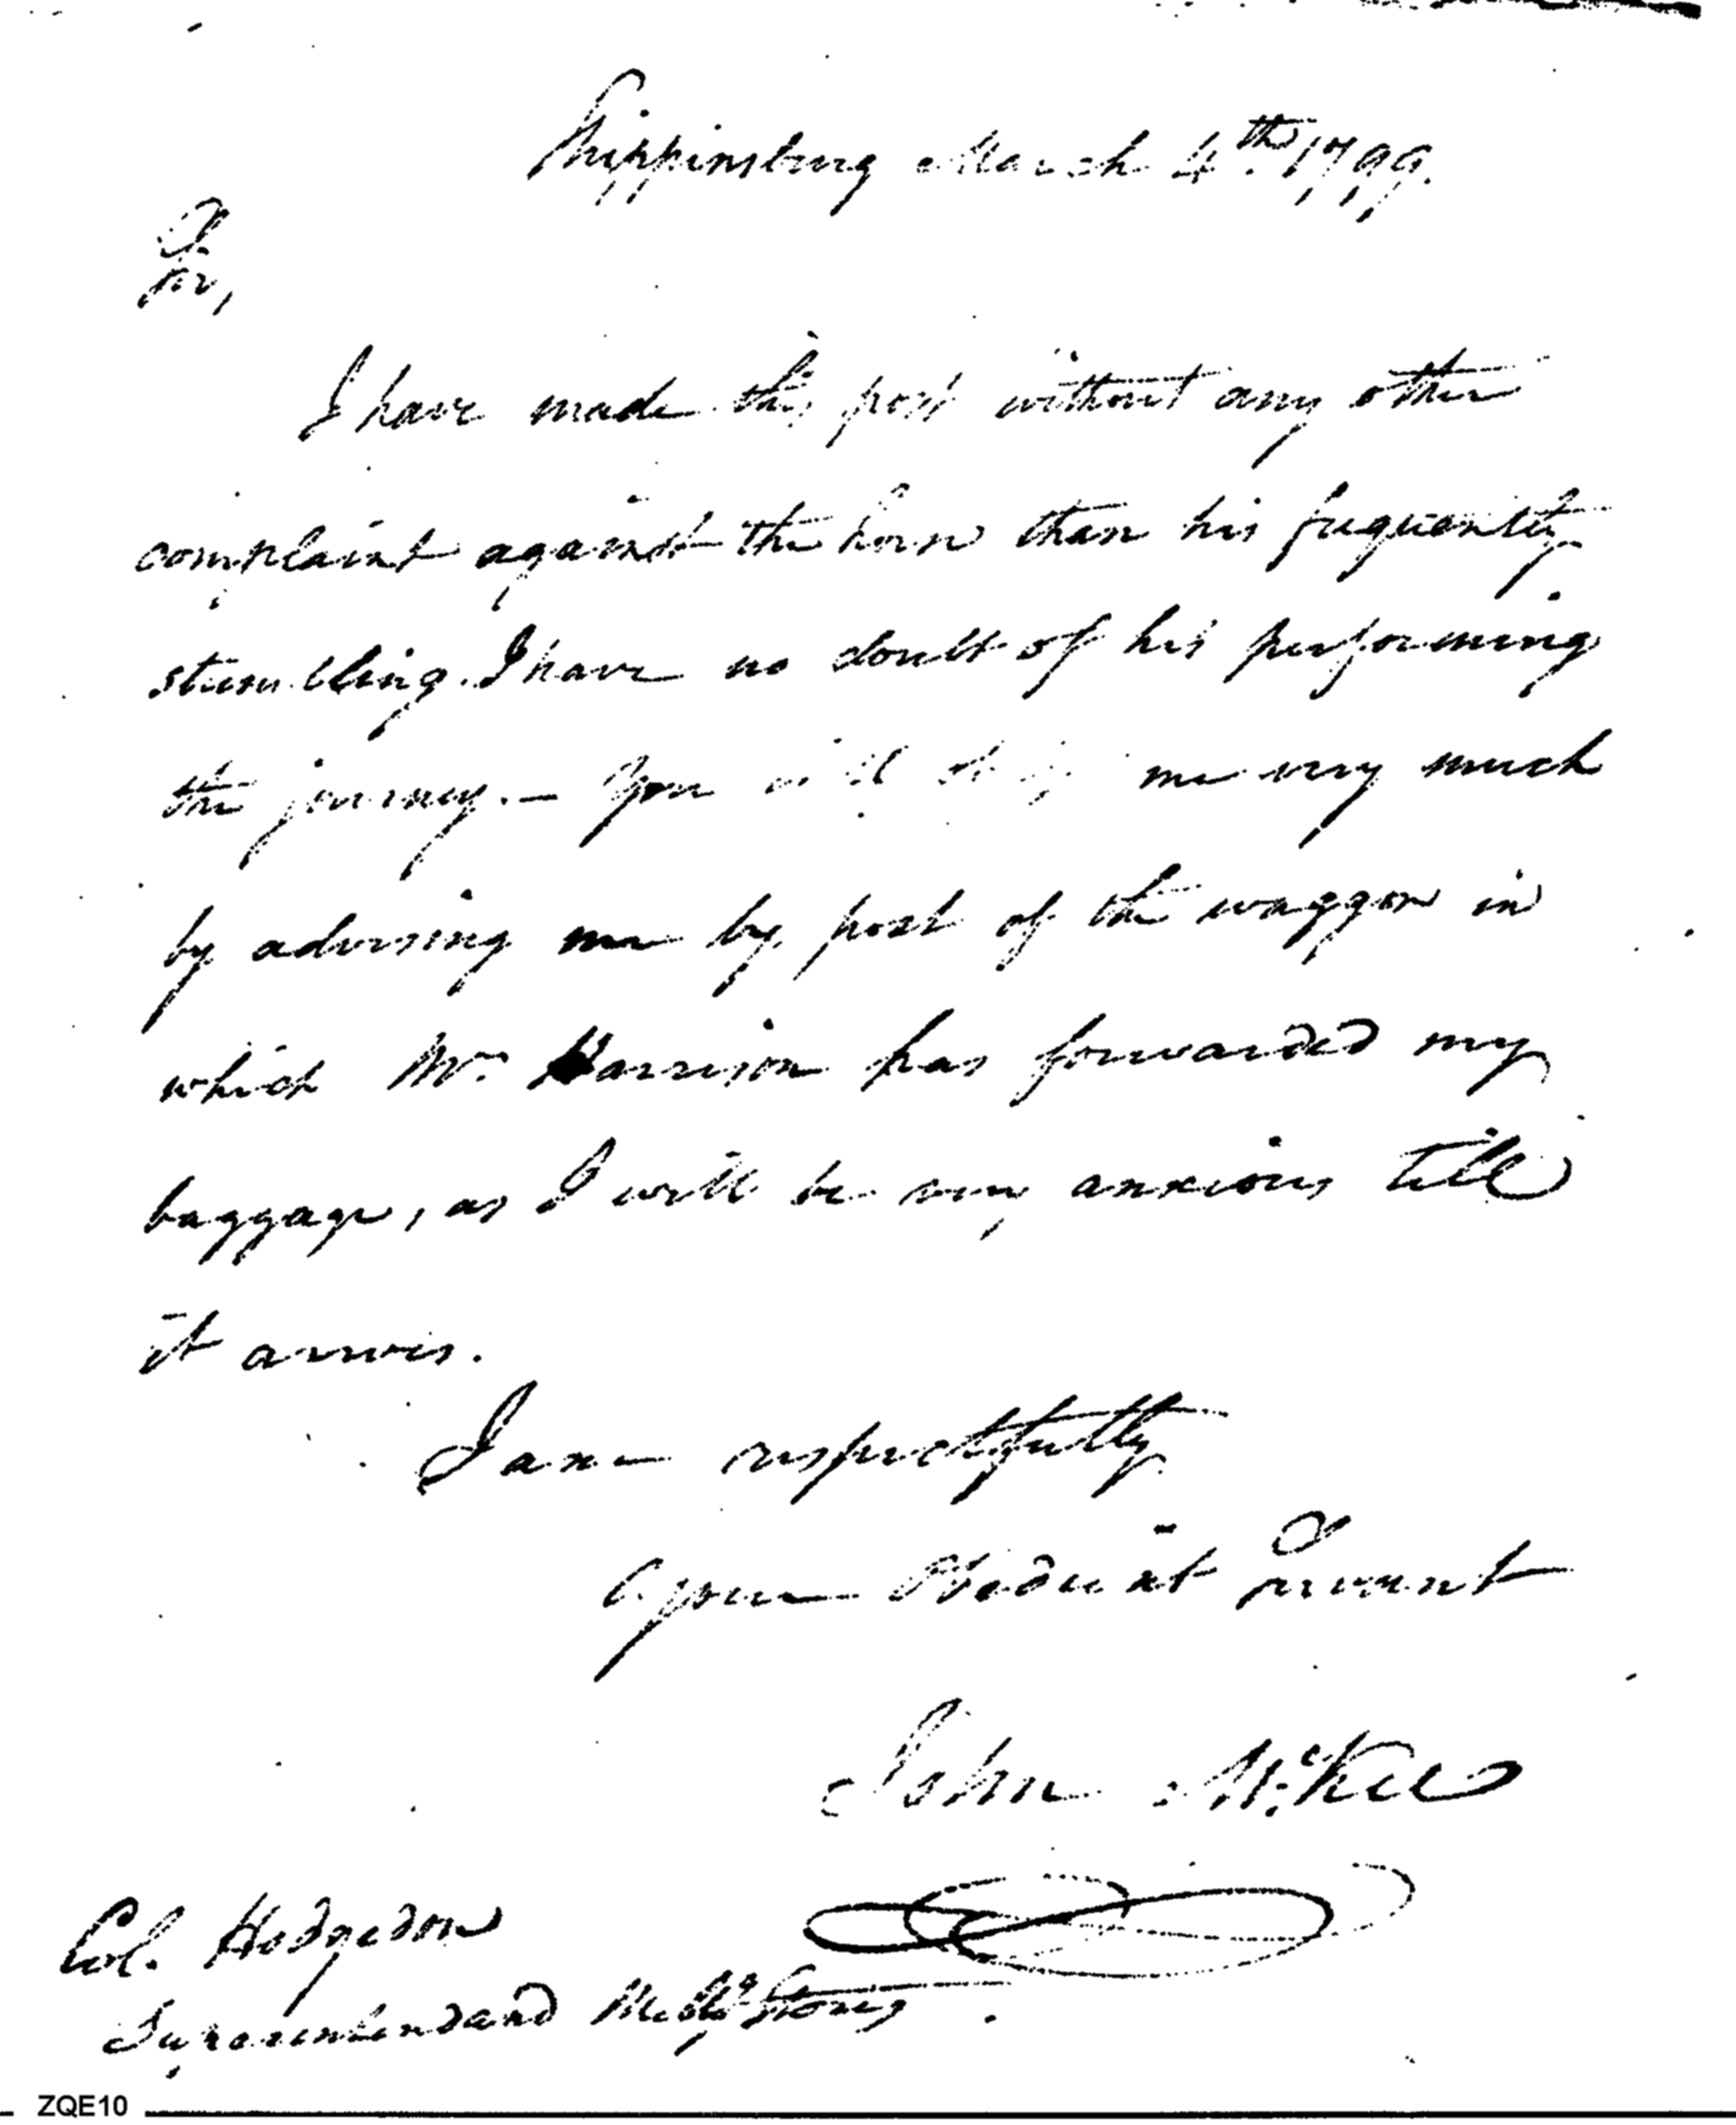 Shippinsburg March 4th 1799.
Sir,
I have made this post without any other
complaint against the horse than his frequently
stumbling. I have no doubt of his performing
the journey. — You will oblige me very much
by advising me by post of the waggon in
which Mr. Harrison has forwarded my
baggage, as I will be very anxious till
it arrives.
I am respectfully
your Obedient Servant
John McKee
Col. Hodgsdon
Superintendand Stores
ZQE10